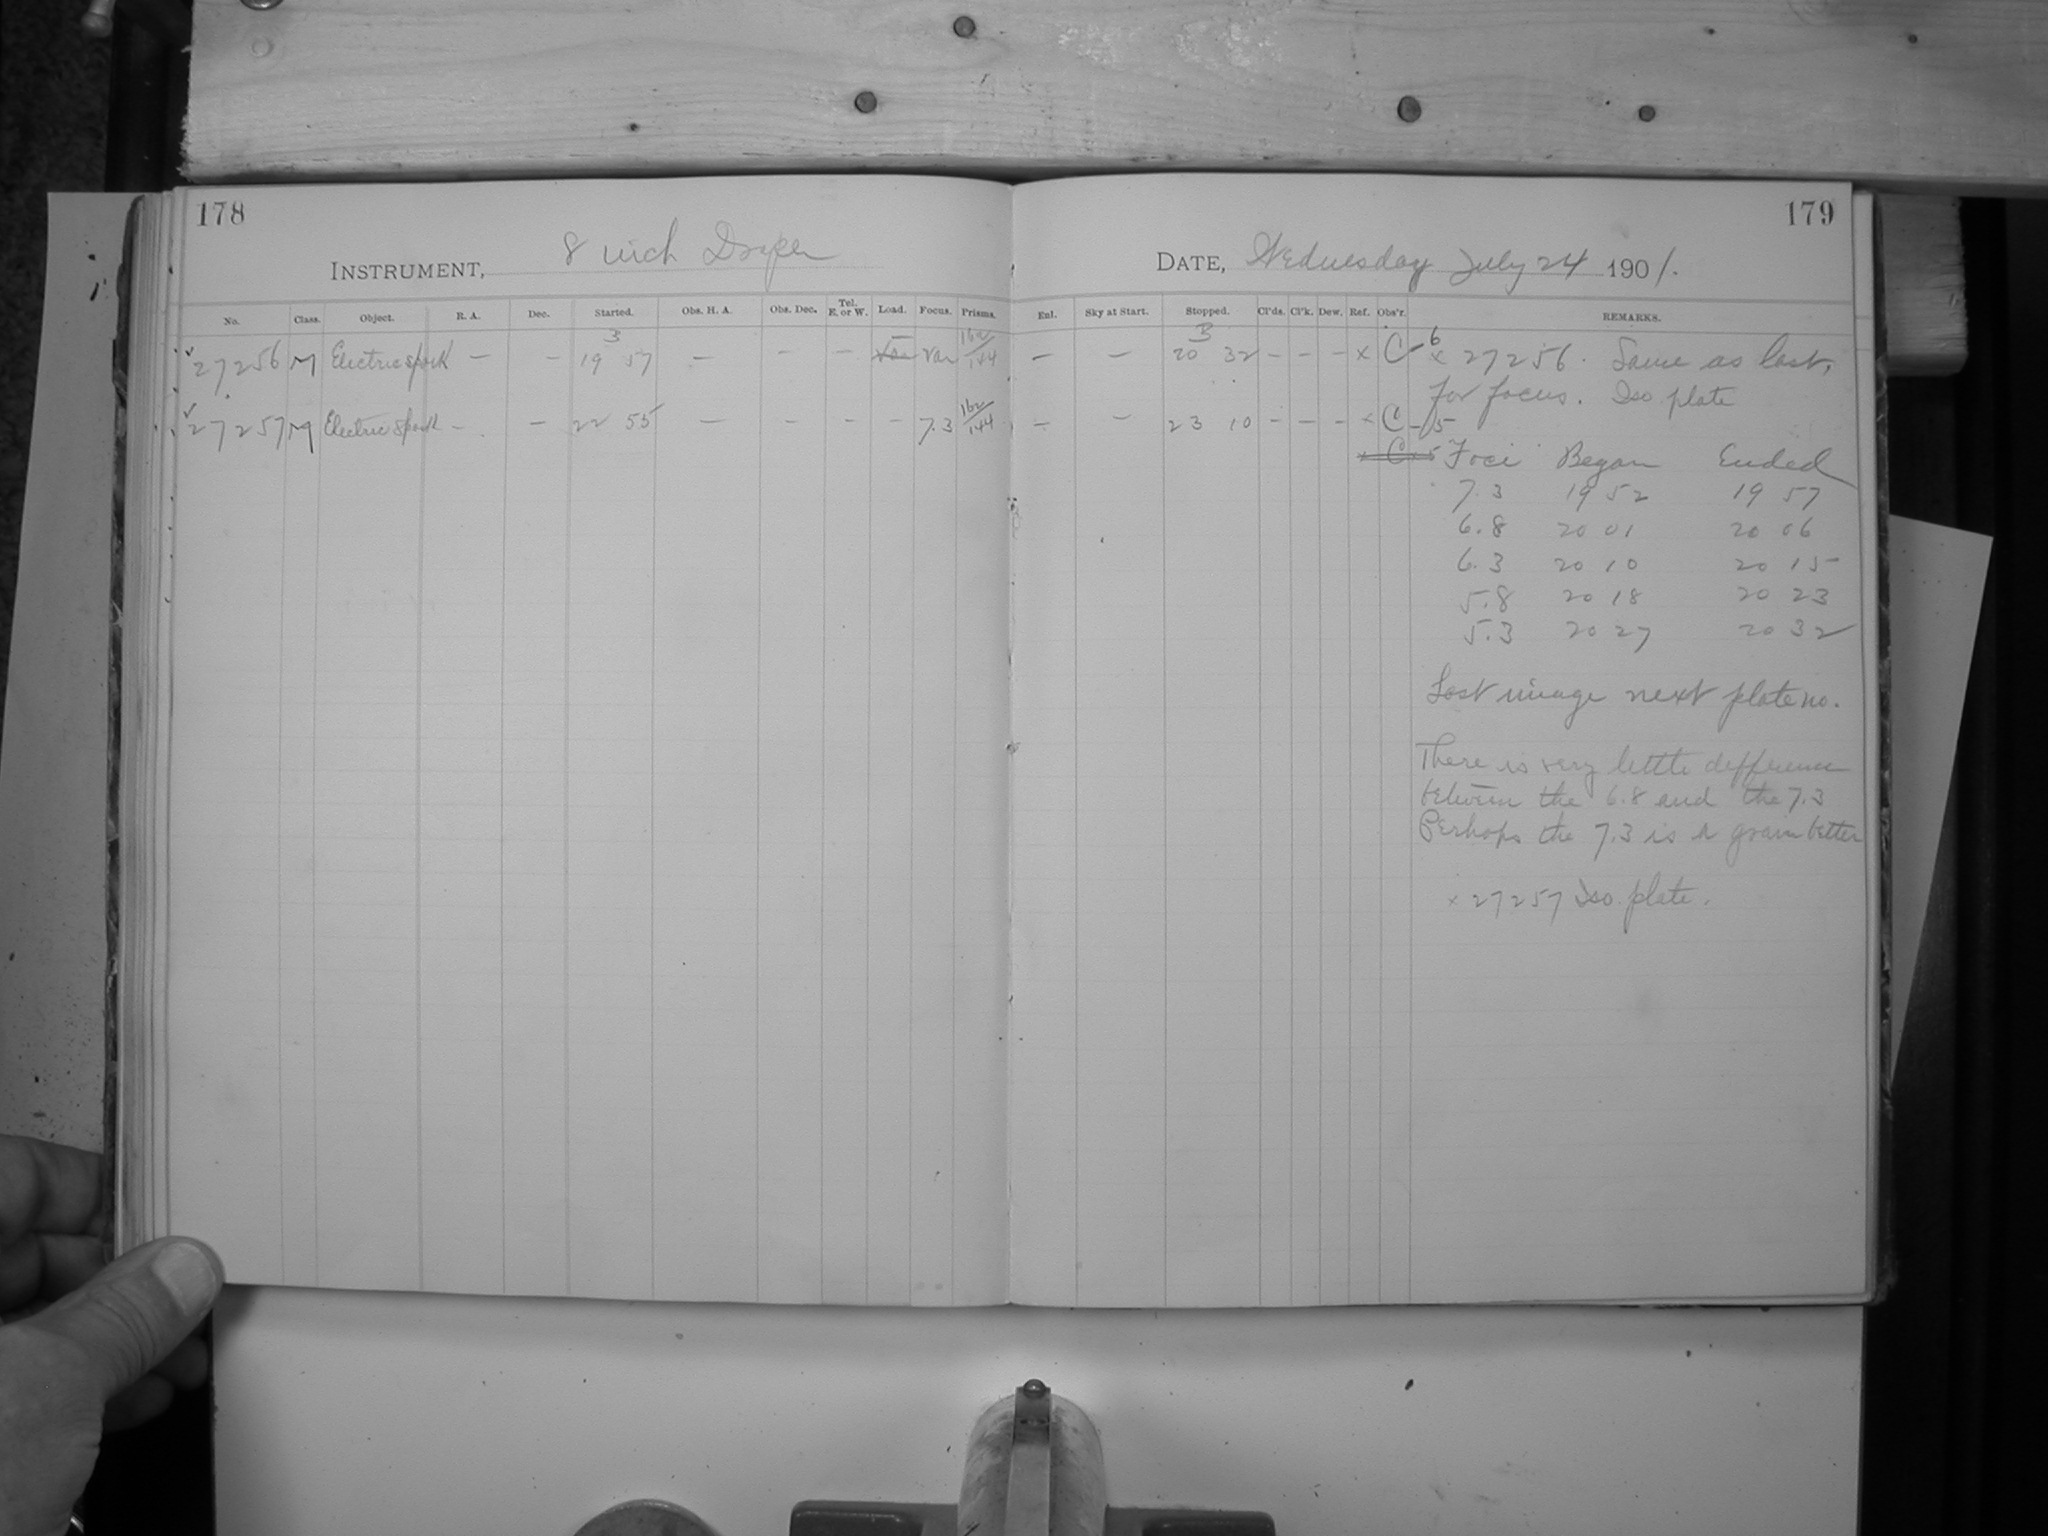 178
179
INSTRUMENT, 8 inch Draper
DATE, Wednesday July 24 1901.
No. Class. Object. R. A. Dec. Started. Obs. H. A. Obs. Dec. Tel. E. or W. Load. Focus. Prisms.
Enl. Sky at Start. Stopped. Cl'ds. Cl'k. Dew. Ref. Obs'r. REMARKS.
3
3
✓ 27256 M Electric spark — — 19 57 — — — Var 162/144
— — 20 32 — — — x C 6 x 27256. Same as last,
for focus. Iso plate
✓ 27257 M Electric spark — — 22 55 — — — — 7.3 162/144
— — 23 10 — — — x C — 5
x C x 5 Foci Began Ended
7.3 19 52 19 57
6.8 20 01 20 06
6.3 20 10 20 15
5.8 20 18 20 23
5.3 20 27 20 32
Last image next plate no.
There is very little difference
between the 6.8 and the 7.3
Perhaps the 7.3 is a grain better
x 27257 Iso. plate.